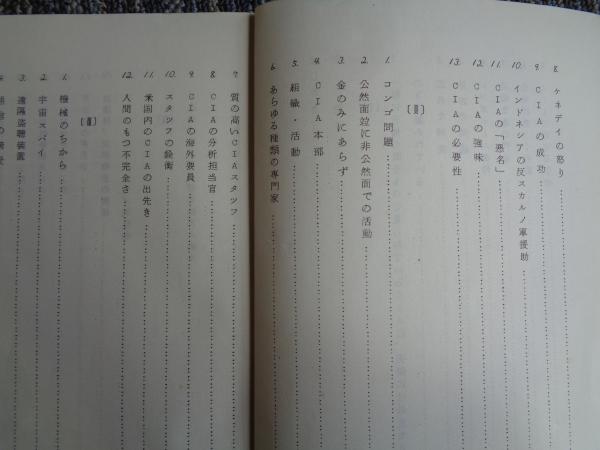 8. ケネディの怒り
9. CIAの成功
10. インドネシアの反スカルノ軍援助
11. CIAの「悪名」
12. CIAの強味
13. CIAの必要性
〔Ⅱ〕
1. コンゴ問題
2. 公然面並に非公然面での活動
3. 金のみにあらず
4. CIA本部
5. 組織・活動
6. あらゆる種類の専門家
7. 質の高いCIAスタッフ
8. CIAの分析担当官
9. CIAの海外要員
10. スタッフの設備
11. 米国内のCIAの出先き
12. 人間のもつ不完全さ
〔Ⅲ〕
1. 機械のちから
2. 宇宙スパイ
3. 遠隔盗聴装置